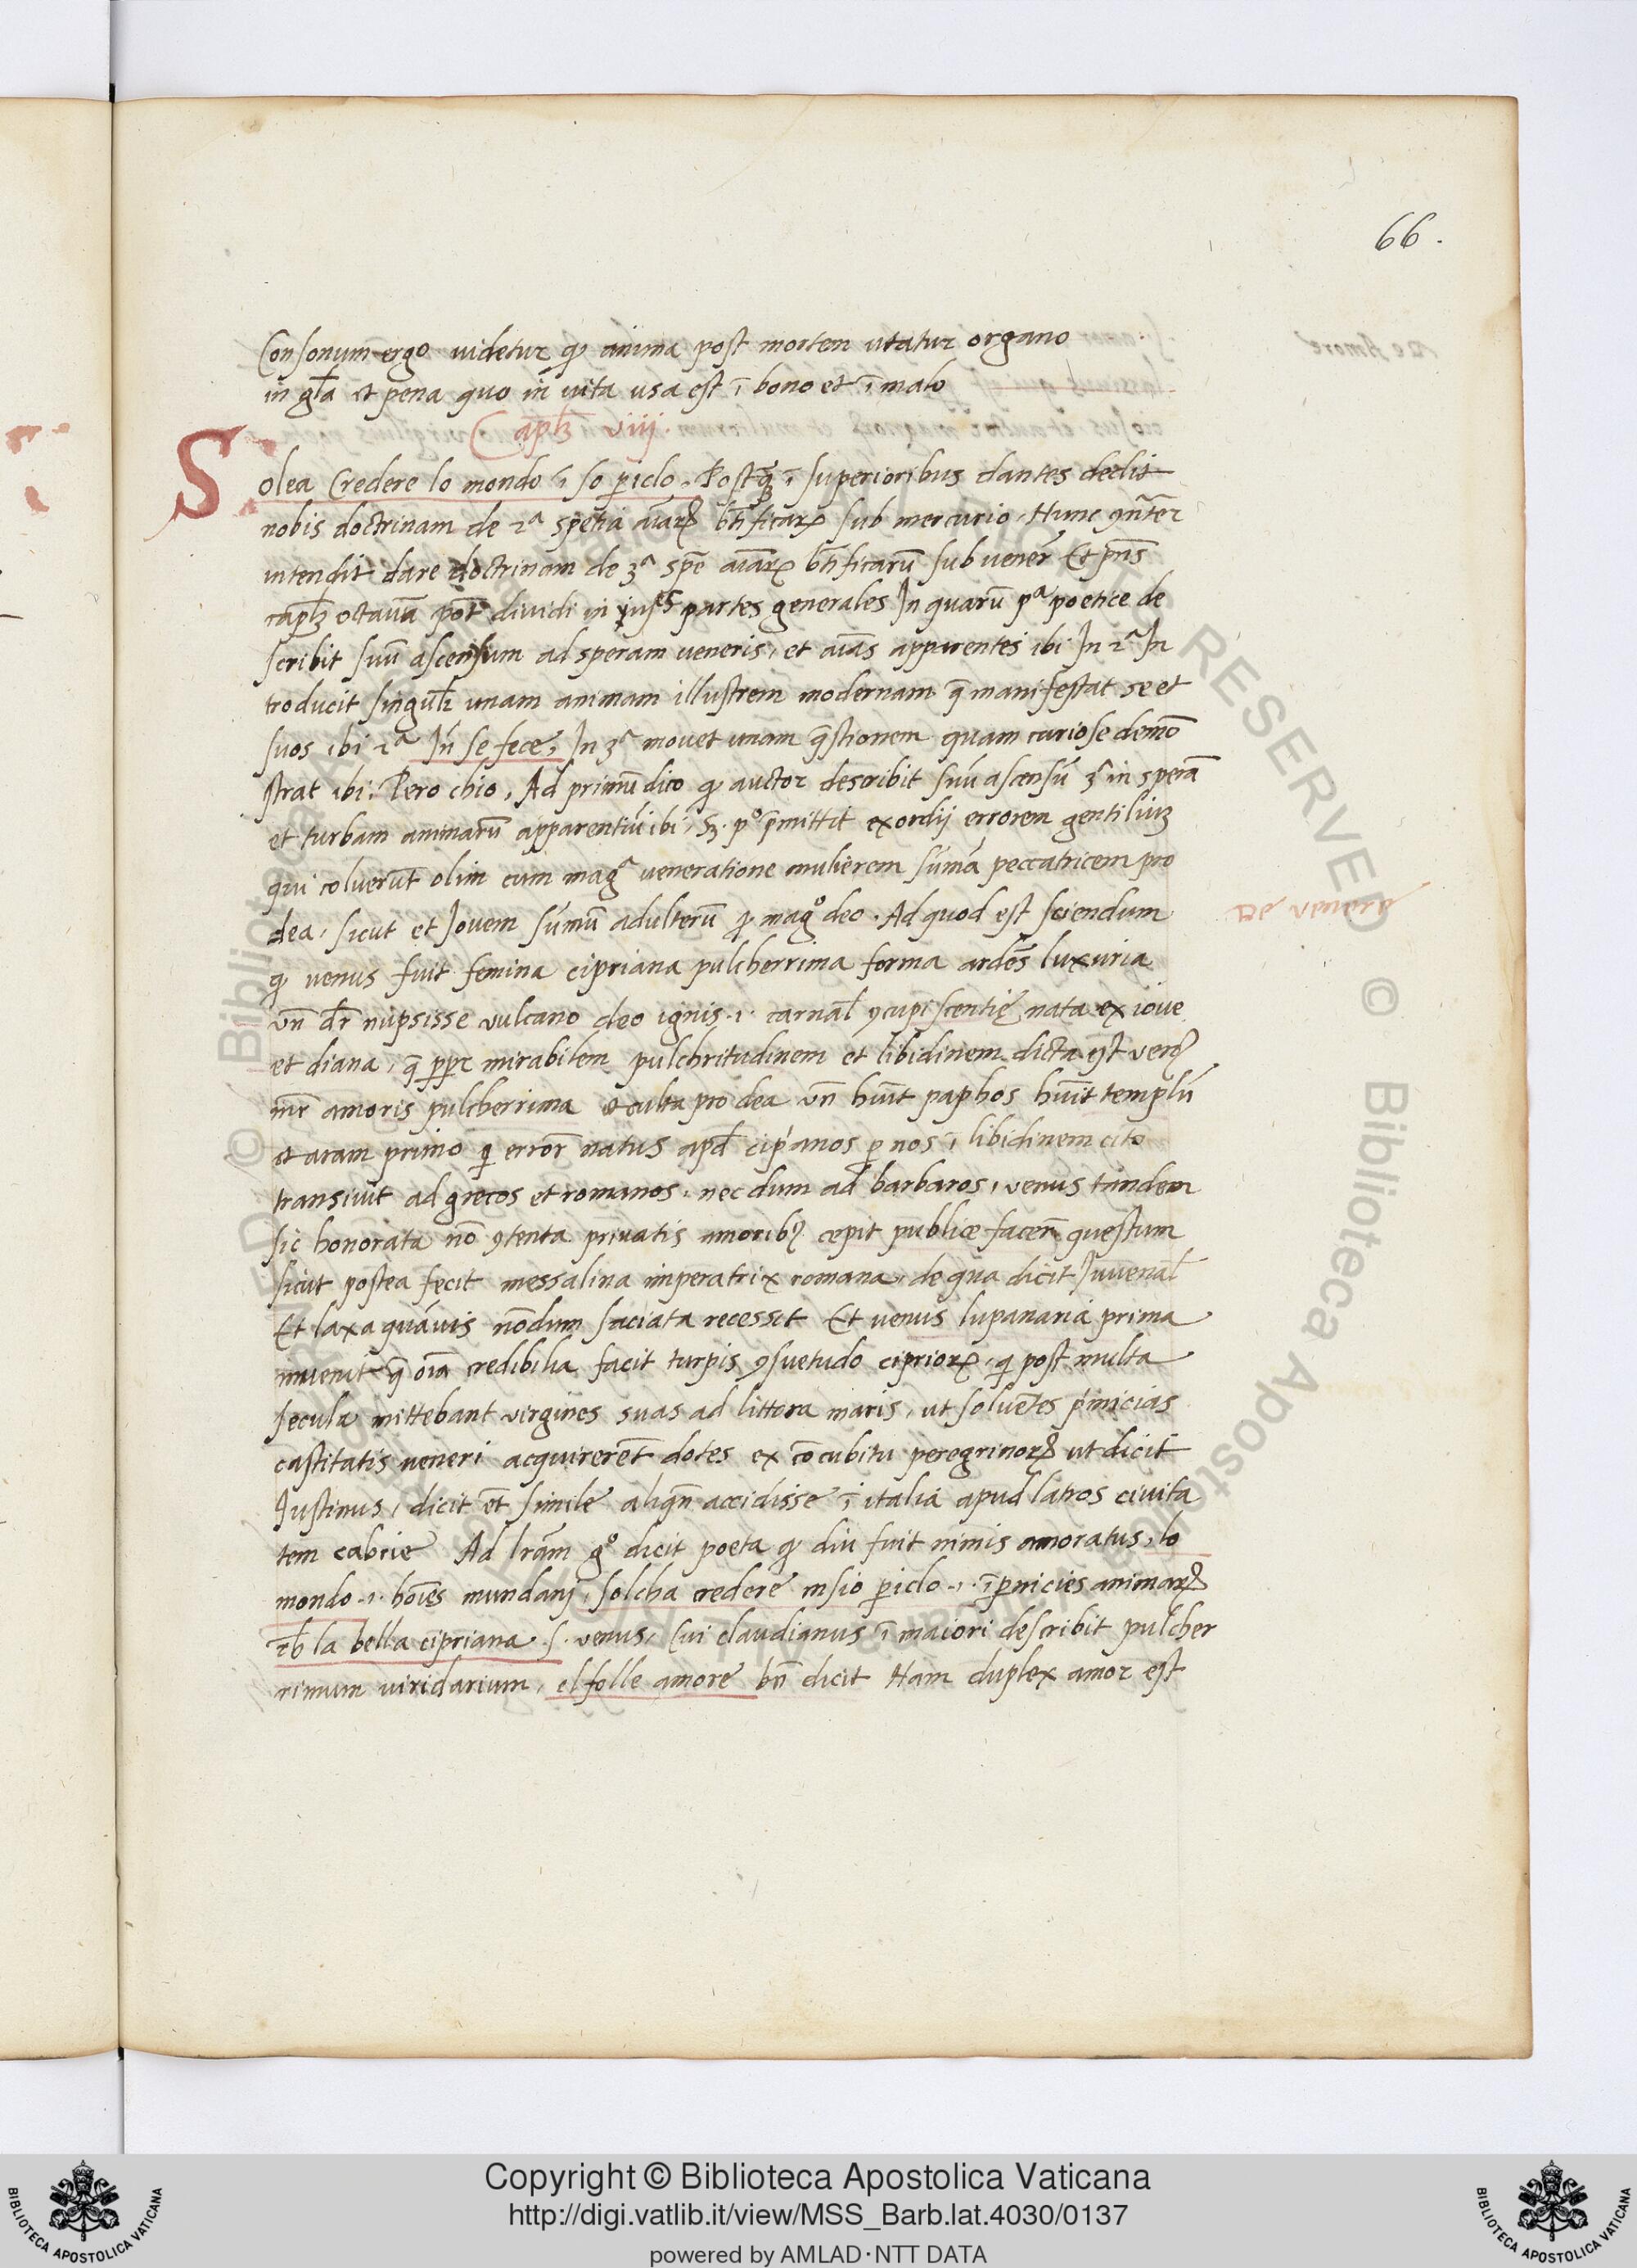 66.
Consonum ergo uidetur ꝙ anima post mortem utatur organo
in gl̄a et pena quo in uita usa est ī bono et ī malo
Cap̄lꝫ viij.
Solea Credere lo mondo ī so p̱iclo. Postqꝫ ī superioribus dantes dedit
nobis doctrinam de 2ª spetiā aīaꝝ bt̄ificaꝝ sub mercurio. Nunc ꝯñter
intendit dare doctrinam de 3ª spē aīaꝝ bt̄ificarū sub venere Et pn̄s
cap̄lꝫ octauū pōt diuidi in partes generales In quarū pª poetice de
scribit suū ascensum ad speram ueneris, et aīas apparentes ibi In 2ª In
troducit singul̄r unam animam illustrem modernam q̄ manifestat se et
suos ibi 2ª In se fece, In 3ª mouet unam q̄stionem quam curiose demō
strat ibi. Pero chio, Ad primū dico ꝙ auctor describit suū ascensū in sperā
et turbam animarū apparentiū ibi, Sꝫ. pº p̄mittit exordij errorem gentiliuꝫ
qui coluerūt olim cum magª ueneratione mulierem sūmā peccatricem pro
dea, sicut et Jouem sūmū adulterū ꝓ magº deo. Ad quod est sciendum
de venere
ꝙ uenus fuit femina cipriana pulcherrima forma ardēs luxuria
vn̄ dr̄ nupsisse vulcano deo ignis .i. carnal̄ ꝯcupiscentię nata ex ioue
et diana, q̄ ꝓpr mirabilem pulchritudinem et libidinem dicta est venꝰ
mr̄ amoris pulcherrima et culta pro dea vn̄ hūit paphos hūit templū
et aram primo qi error natus apd̄ cip'anos ꝓnos ī libidinem cito
transiuit ad grecos et romanos, nec dum ad barbaros, venus tandem
sic honorata nō ꝯtenta priuatis amoribꝰ cepit publice facere questum
sicut postea fecit messalina imperatrix romana, de qua dicit Juuenal̄
Et laxa quāuis nōdum saciata recessit Et uenus lupanaria prima
inuenit q̄ oīa credibilia facit turpis ꝯsuetudo cipriorꝝ, qi post multa
secula mittebant virgines suas ad littora maris, ut soluētes p'micias
castitatis ueneri acquirerēt dotes ex cōcubitu peregrinorꝝ ut dicit
Justinus, dicit et̄ simile aliqn̄ accidisse ī italia apud latros ciuita
tem cabrie Ad lr̄am gº dicit poeta ꝙ diu fuit nimis amoratus, lo
mondo .i. hoīes mundani, solcha credere insio p̱iclo .i. īp̱nicies animarꝝ
la bella cipriana .s. venus, Cui claudianus ī maiori describit pulcher
rimum viridarium, el folle amore bn̄ dicit Nam duplex amor est
Copyright © Biblioteca Apostolica Vaticana
http://digi.vatlib.it/view/MSS_Barb.lat.4030/0137
powered by AMLAD·NTT DATA
BIBLIOTECA APOSTOLICA VATICANA
BIBLIOTECA APOSTOLICA VATICANA